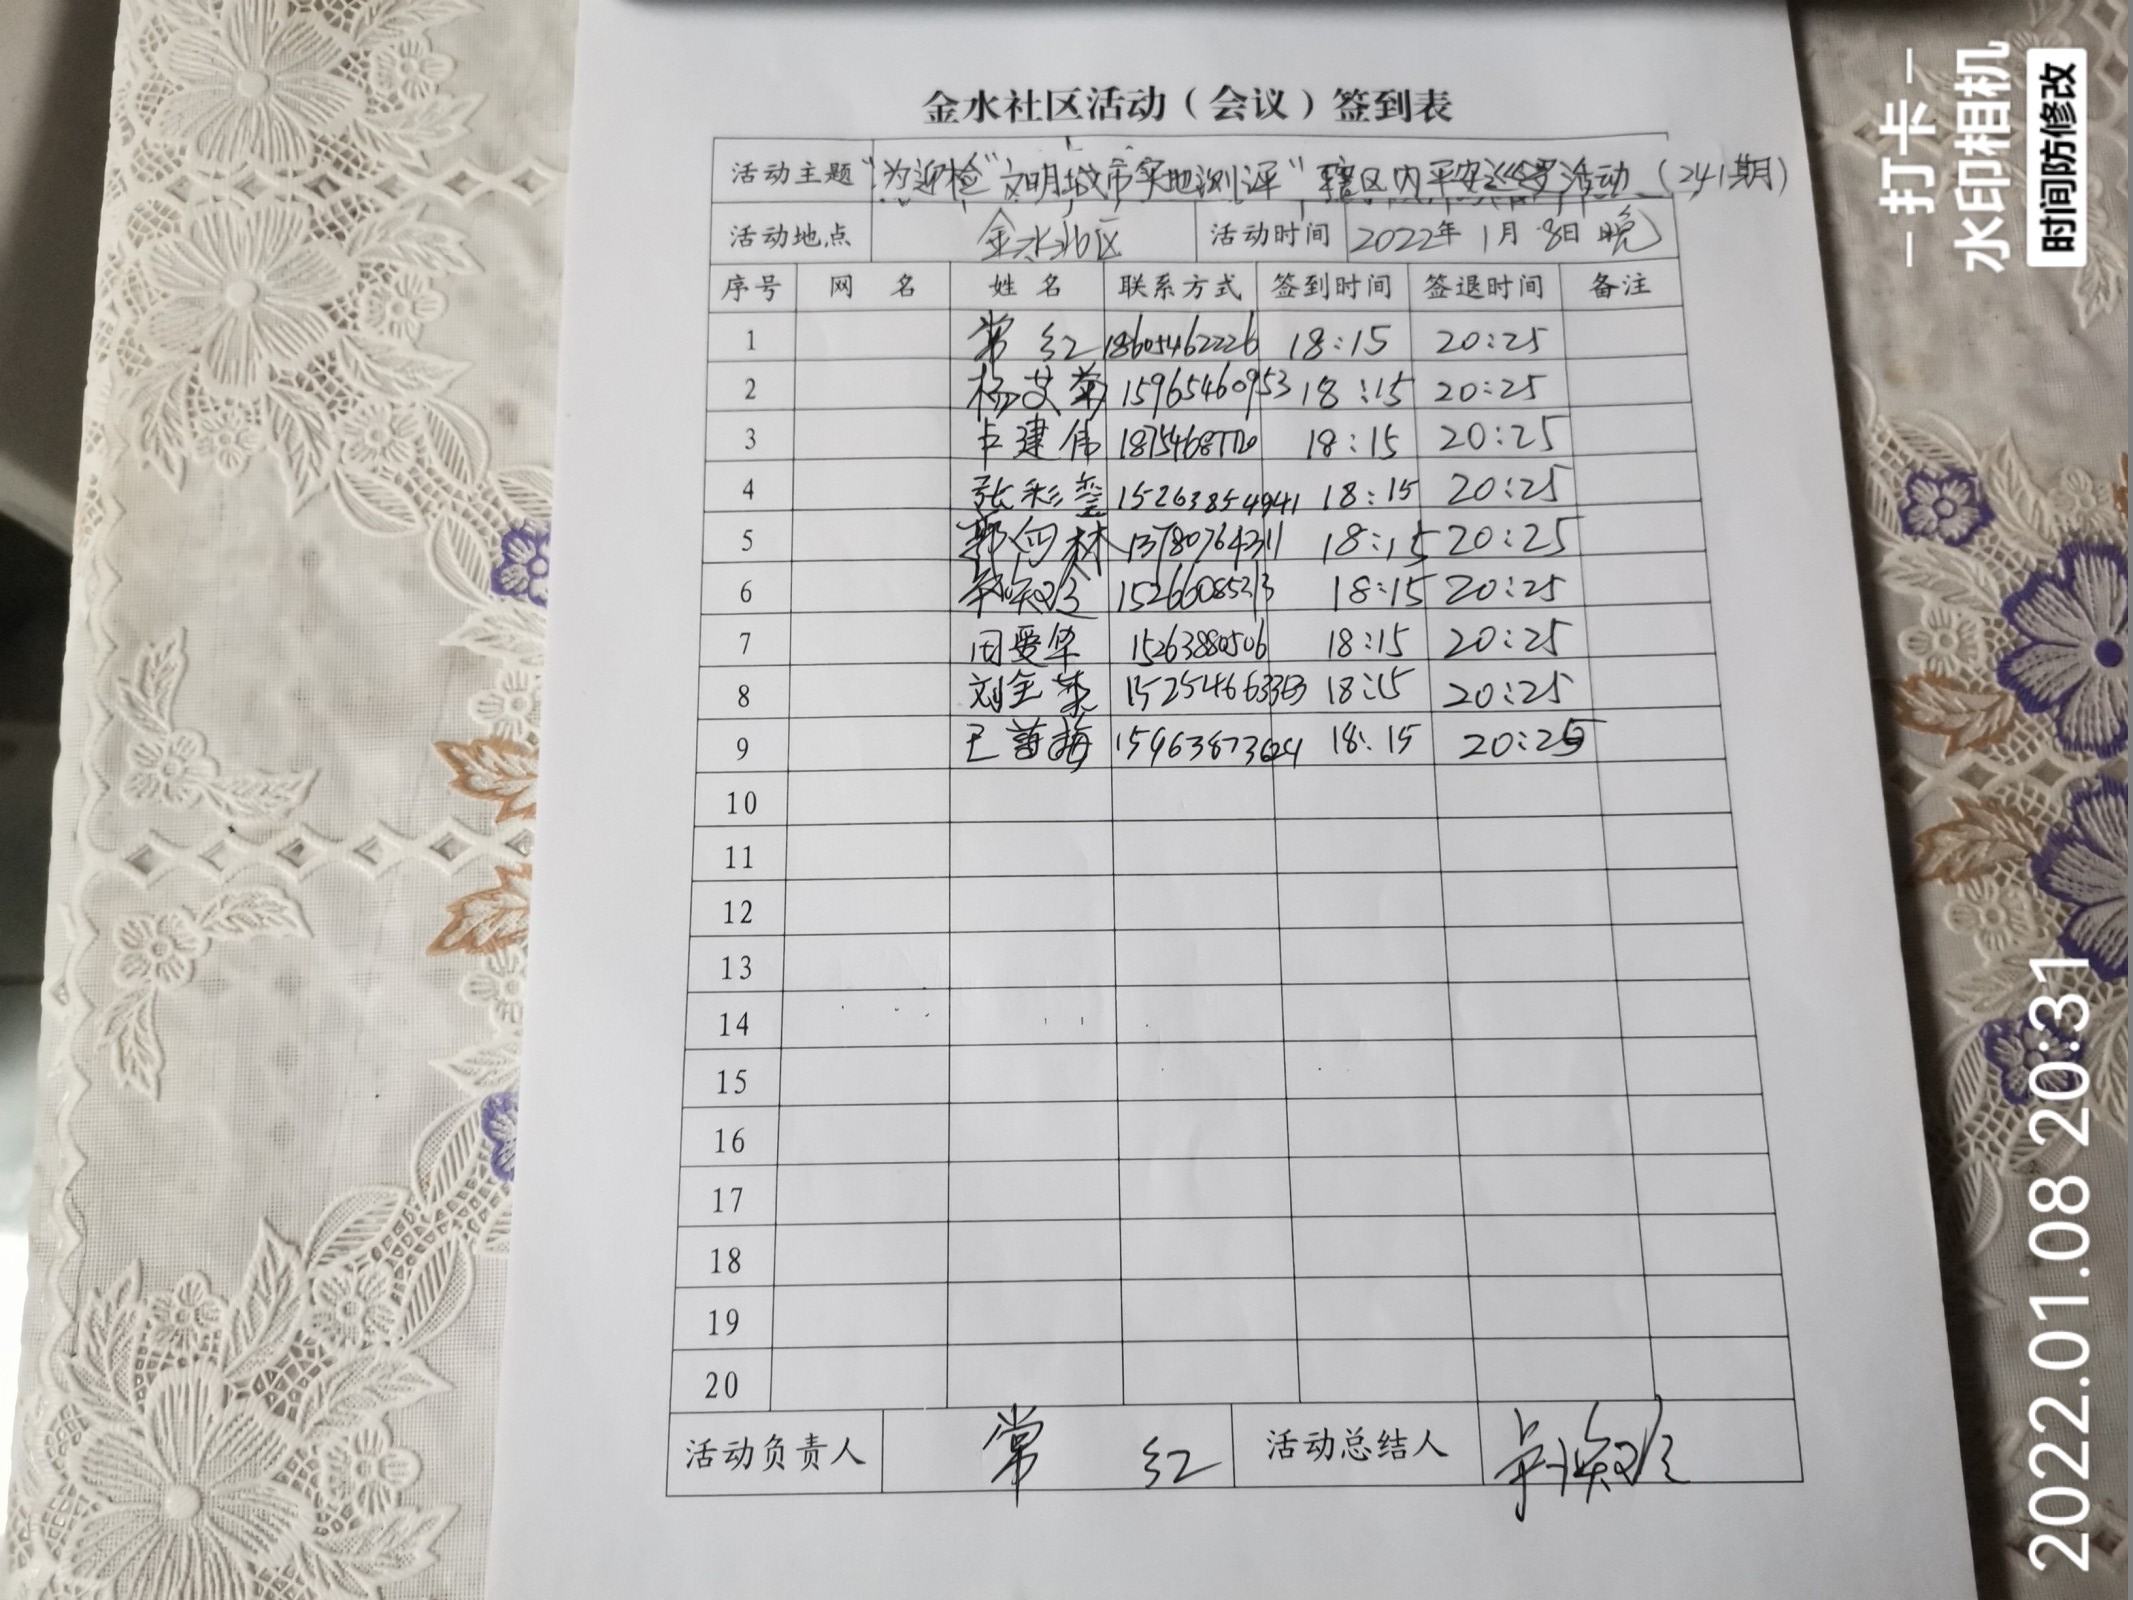 金水社区活动（会议）签到表
活动主题 "为迎检"文明城市实地测评"辖区内平安巡逻活动（241期）
活动地点 金水北区 活动时间 2022年1月8日晚
序号 网 名 姓 名 联系方式 签到时间 签退时间 备注
1 常红 18605462226 18:15 20:25
2 杨艾菊 15965460953 18:15 20:25
3 卢建伟 18:15 20:25
4 张彩 15263854941 18:15 20:25
5 郭 林 13780764311 18:15 20:25
6 15266085213 18:15 20:25
7 田爱华 15263880506 18:15 20:25
8 刘金荣 18:15 20:25
9 梅 18:15 20:25
10
11
12
13
14
15
16
17
18
19
20
活动负责人 常红 活动总结人
打卡
水印相机
时间防修改
2022.01.08 20:31